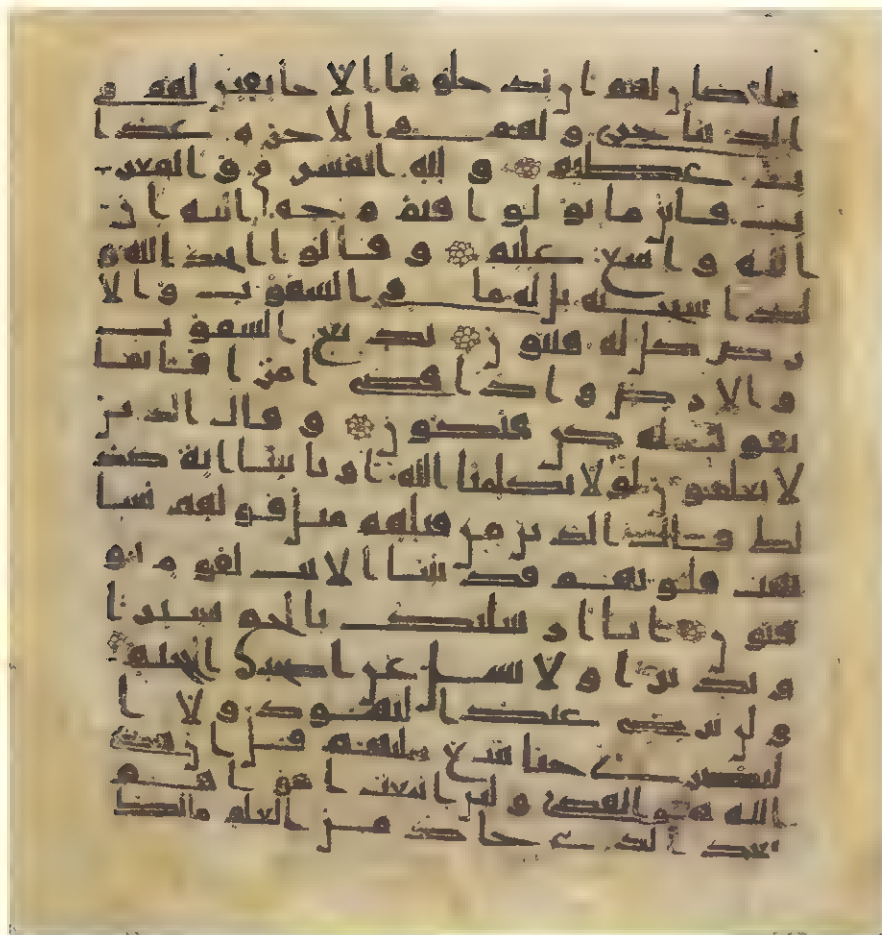 ما كان لهم ان يدخلوها الا خايفين لهم في
الدنيا خزي ولهم في الاخرة عذا
ب عظيم ولله المشرق والمغر
ب فاينما تولوا فثم وجه الله ان
الله واسع عليم وقالوا اتخذ الله و
لدا سبحنه بل له ما في السموت والا
رض كل له قنتون بديع السموت
والارض واذا قضى امرا فانما
يقول له كن فيكون وقال الذين
لا يعلمون لولا يكلمنا الله او تاتينا اية كذ
لك قال الذين من قبلهم مثل قولهم تشا
بهت قلوبهم قد بينا الايت لقوم يو
قنون انا ارسلنك بالحق بشيرا
ونذيرا ولا تسل عن اصحب الجحيم
ولن ترضى عنك اليهود ولا ا
لنصرى حتا تتبع ملتهم قل ان هدى
الله هو الهدى ولين اتبعت اهواهم
بعد الذي جاك من العلم ما لك